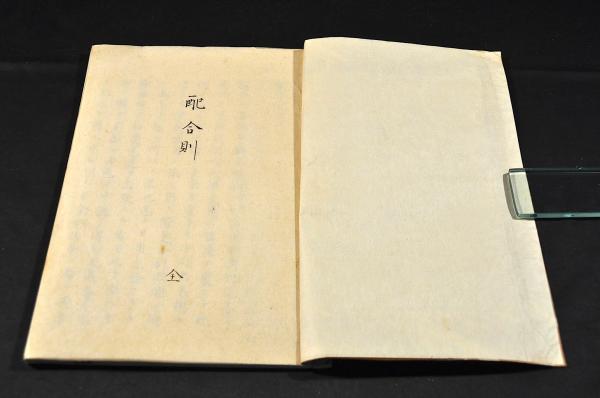 配合則
全